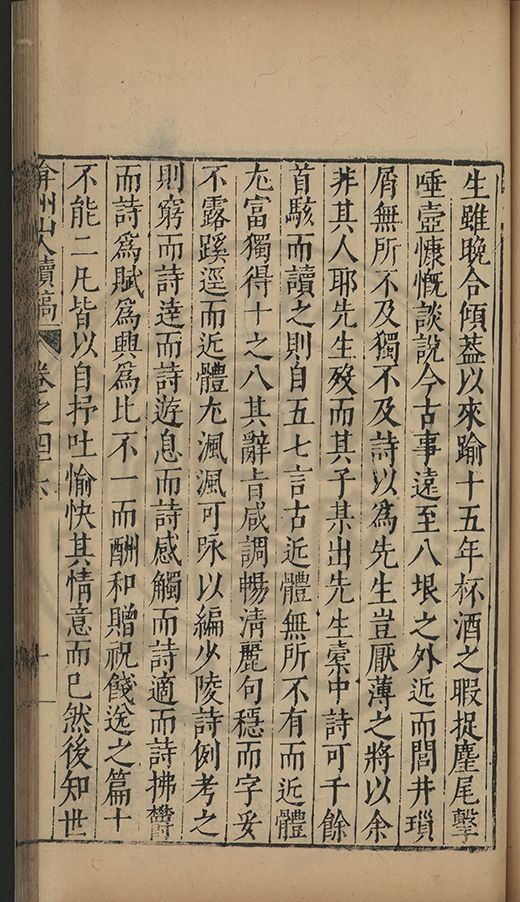 生雖晚合傾蓋以來踰十五年杯酒之暇捉麈尾擊
唾壺慷慨談說今古事遠至八垠之外近而閭井瑣
屑無所不及獨不及詩以爲先生豈厭薄之將以余
非其人耶先生歿而其子某出先生槖中詩可千餘
首駭而讀之則自五七言古近體無所不有而近體
尢富獨得十之八其辭旨咸調暢清麗句穩而字妥
不露蹊逕而近體尢渢渢可咏以編少陵詩例考之
則窮而詩達而詩遊息而詩感觸而詩適而詩拂鬱
而詩爲賦爲興爲比不一而酬和贈祝餞送之篇十
不能二凡皆以自抒吐愉快其情意而已然後知世
弇州山人續稿 卷之四十六 十